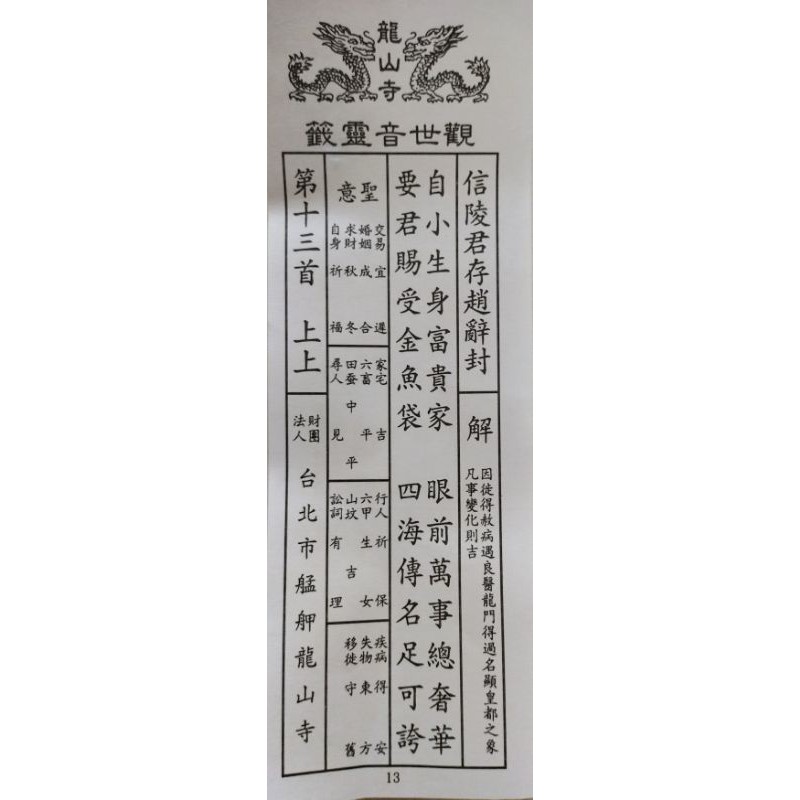 龍山寺
觀世音靈籤
信陵君存趙辭封
解
因徒得赦病遇良醫龍門得過名顯皇都之象
凡事變化則吉
自小生身富貴家 眼前萬事總奢華
要君賜受金魚袋 四海傳名足可誇
聖意
交易宜遲
婚姻成合
求財秋冬
自身祈福
家宅吉
六畜平
田蚕中平
尋人見
行人祈保
六甲生女
山坟吉
訟詞有理
疾病得安
失物東方
移徙守舊
第十三首 上上
財團法人
台北市艋舺龍山寺
13